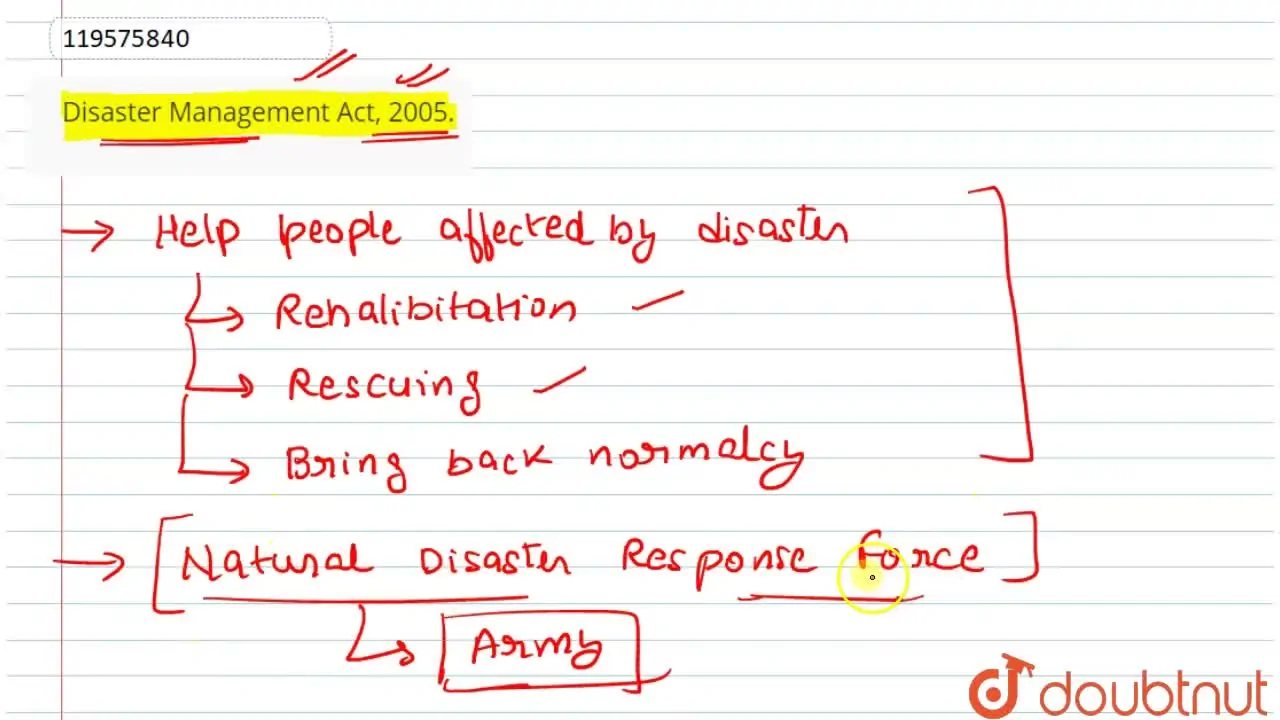 119575840
Disaster Management Act, 2005.
→ Help people affected by disaster
→ Rehalibitation
→ Rescuing
→ Bring back normalcy
→ [Natural Disaster Response Force]
→ Army
doubtnut